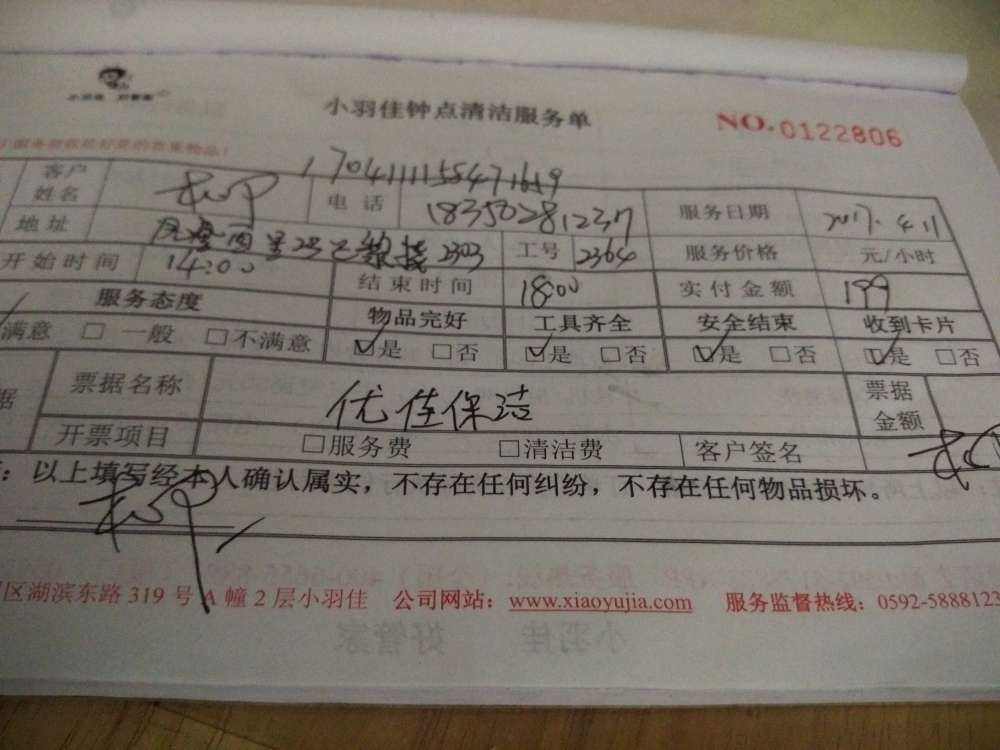 小羽佳 好管家
小羽佳钟点清洁服务单 NO.0122806
客户姓名 电话 18350281237 服务日期 2017.4.11
地址 2303 工号 2364 服务价格 元/小时
开始时间 14:00 结束时间 18:00 实付金额 199
服务态度 物品完好 工具齐全 安全结束 收到卡片
满意 □一般 □不满意 ☑是 □否 ☑是 □否 ☑是 □否 ☑是 □否
据 票据名称 优佳保洁 票据金额
开票项目 □服务费 □清洁费 客户签名
：以上填写经本人确认属实，不存在任何纠纷，不存在任何物品损坏。
区湖滨东路 319 号 A 幢 2 层小羽佳 公司网站：www.xiaoyujia.com 服务监督热线：0592-5888123